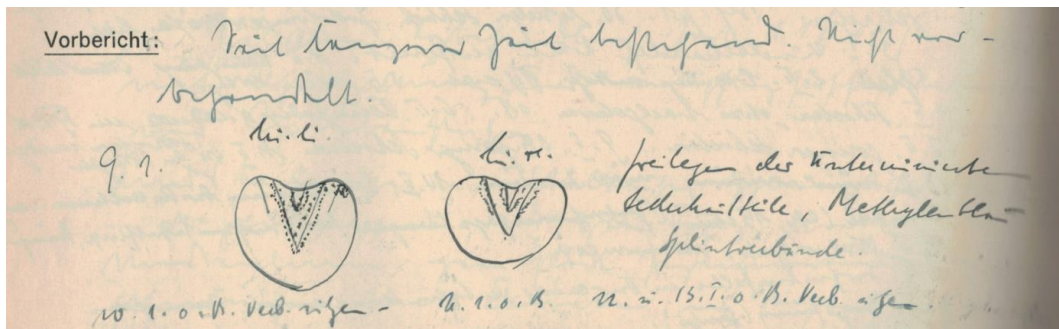 Vorbericht: Seit längerer Zeit bestehend. Nicht vor-
behandelt.
hi. li.
hi. re.
9. 1.
freilegen der unterminierte
Lederhautteile, Methylenblau
Splintverbände.
10. 1. o. B. Verb. 11. 1. o. B. 12. u. 13. I. o. B. Verb.